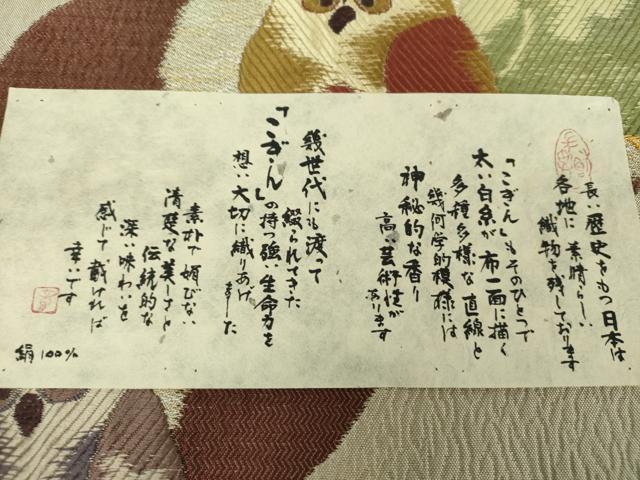 長い歴史をもつ日本は
各地に素晴らしい
織物を残しております
「こぎん」もそのひとつで
太い白糸が布一面に描く
多種多様な直線と
幾何学的模様には
神秘的な香り
高い芸術性が
あります
幾世代にも渡って
綴られてきた
「こぎん」の持つ強い生命力を
想い大切に織りあげ
ました
素朴で媚びない
清楚な美しさと
伝統的な
深い味わいを
感じて戴ければ
幸いです
絹100%